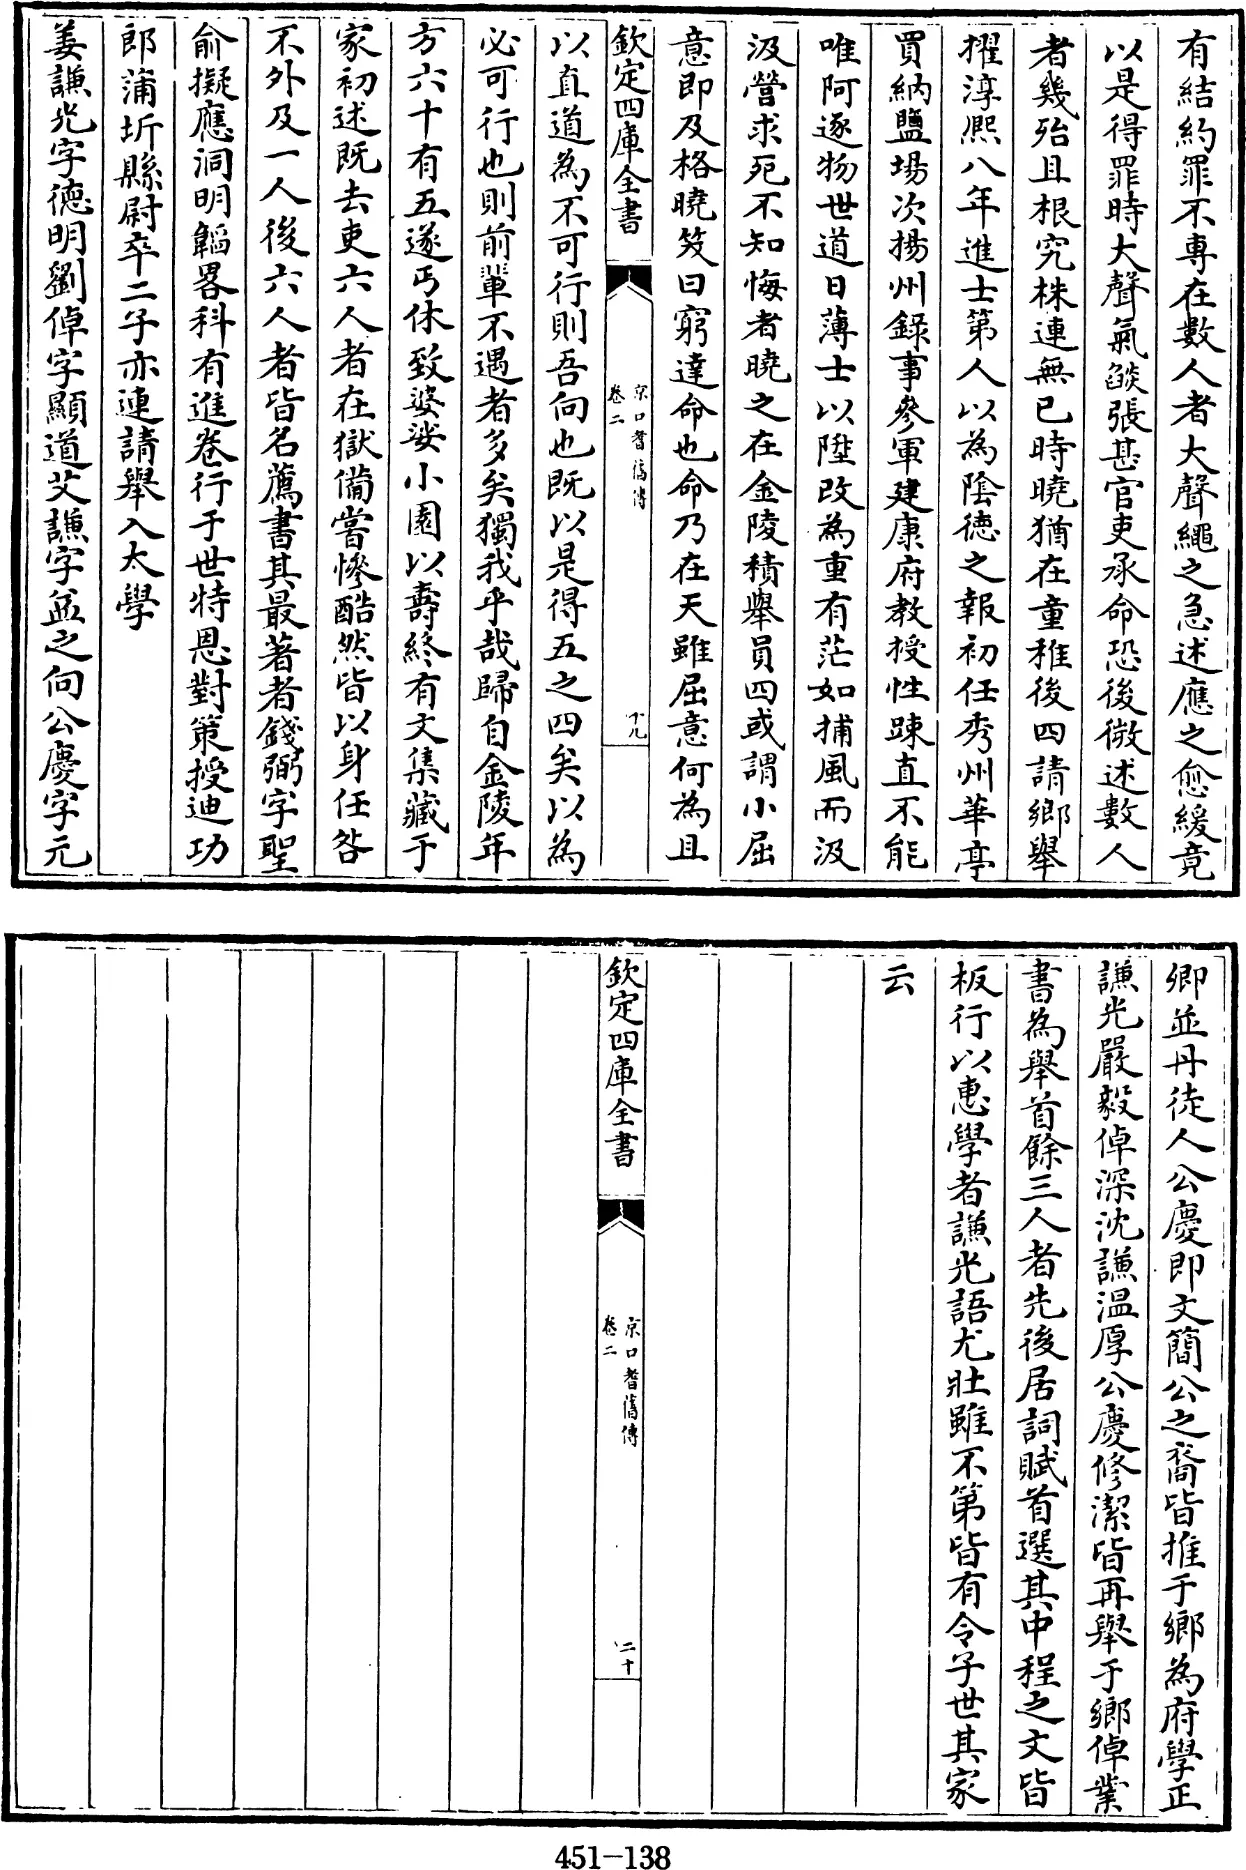 有結約罪不專在數人者大聲繩之急述應之愈緩竟
以是得罪時大聲氣燄張甚官吏承命恐後微述數人
者幾殆且根究株連無已時曉猶在童稚後四請鄉舉
擢淳熙八年進士第人以為陰德之報初任秀州華亭
買納鹽場次揚州錄事參軍建康府教授性踈直不能
唯阿逐物世道日薄士以陞改為重有茫如捕風而汲
汲營求死不知悔者曉之在金陵積舉員四或謂小屈
意即及格曉笑曰窮達命也命乃在天雖屈意何為且
欽定四庫全書
京口耆舊傳
卷二
十九
以直道為不可行則吾向也既以是得五之四矣以為
必可行也則前輩不遇者多矣獨我乎哉歸自金陵年
方六十有五遂丐休致婆娑小園以壽終有文集藏于
家初述既去吏六人者在獄備嘗慘酷然皆以身任咎
不外及一人後六人者皆名薦書其最著者錢弼字聖
俞擬應洞明韜畧科有進卷行于世特恩對策授迪功
郎蒲圻縣尉卒二子亦連請舉入太學
姜謙光字德明劉倬字顯道艾謙字益之向公慶字元
卿並丹徒人公慶即文簡公之裔皆推于鄉為府學正
謙光嚴毅倬深沈謙温厚公慶修潔皆再舉于鄉倬業
書為舉首餘三人者先後居詞賦首選其中程之文皆
板行以惠學者謙光語尤壯雖不第皆有令子世其家
云
欽定四庫全書
京口耆舊傳
卷二
二十
451-138